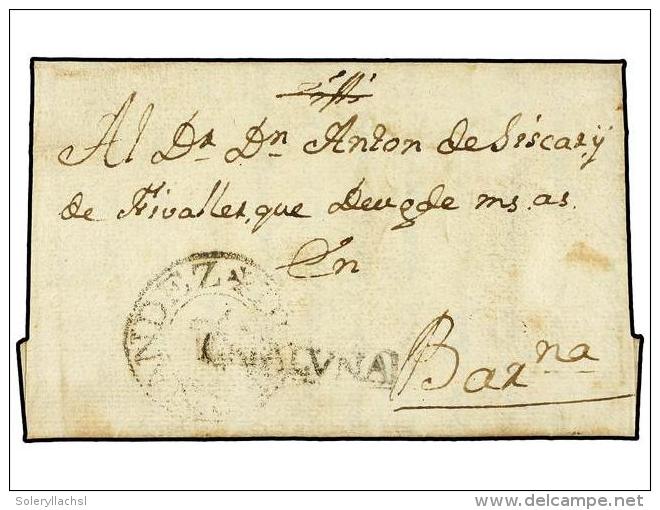 Al Dr. Dn. Anton de Siscar, y
de Fivaller, que Deu gde ms. as.
En
Barna
NDEZ
CATALUNA
Soleryllachsl
www.delcampe.net